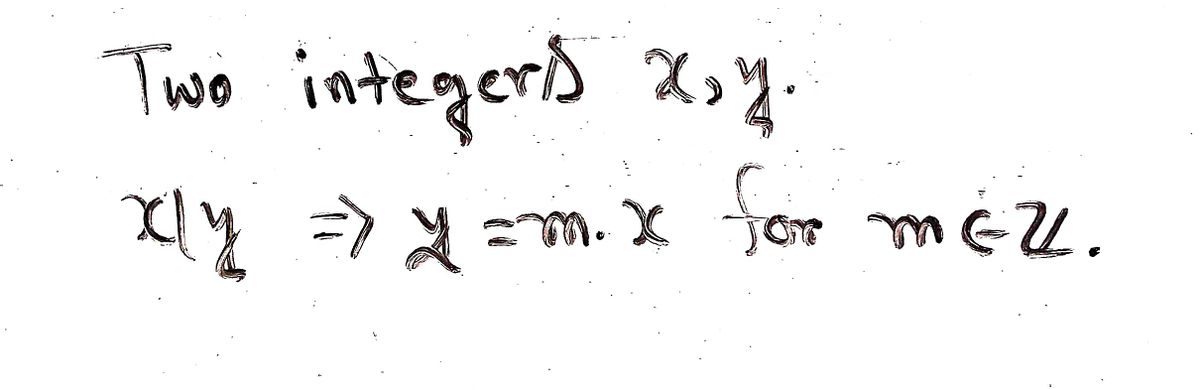 Two integers x, y.
x|y => y = m. x for m ∈ ℤ.